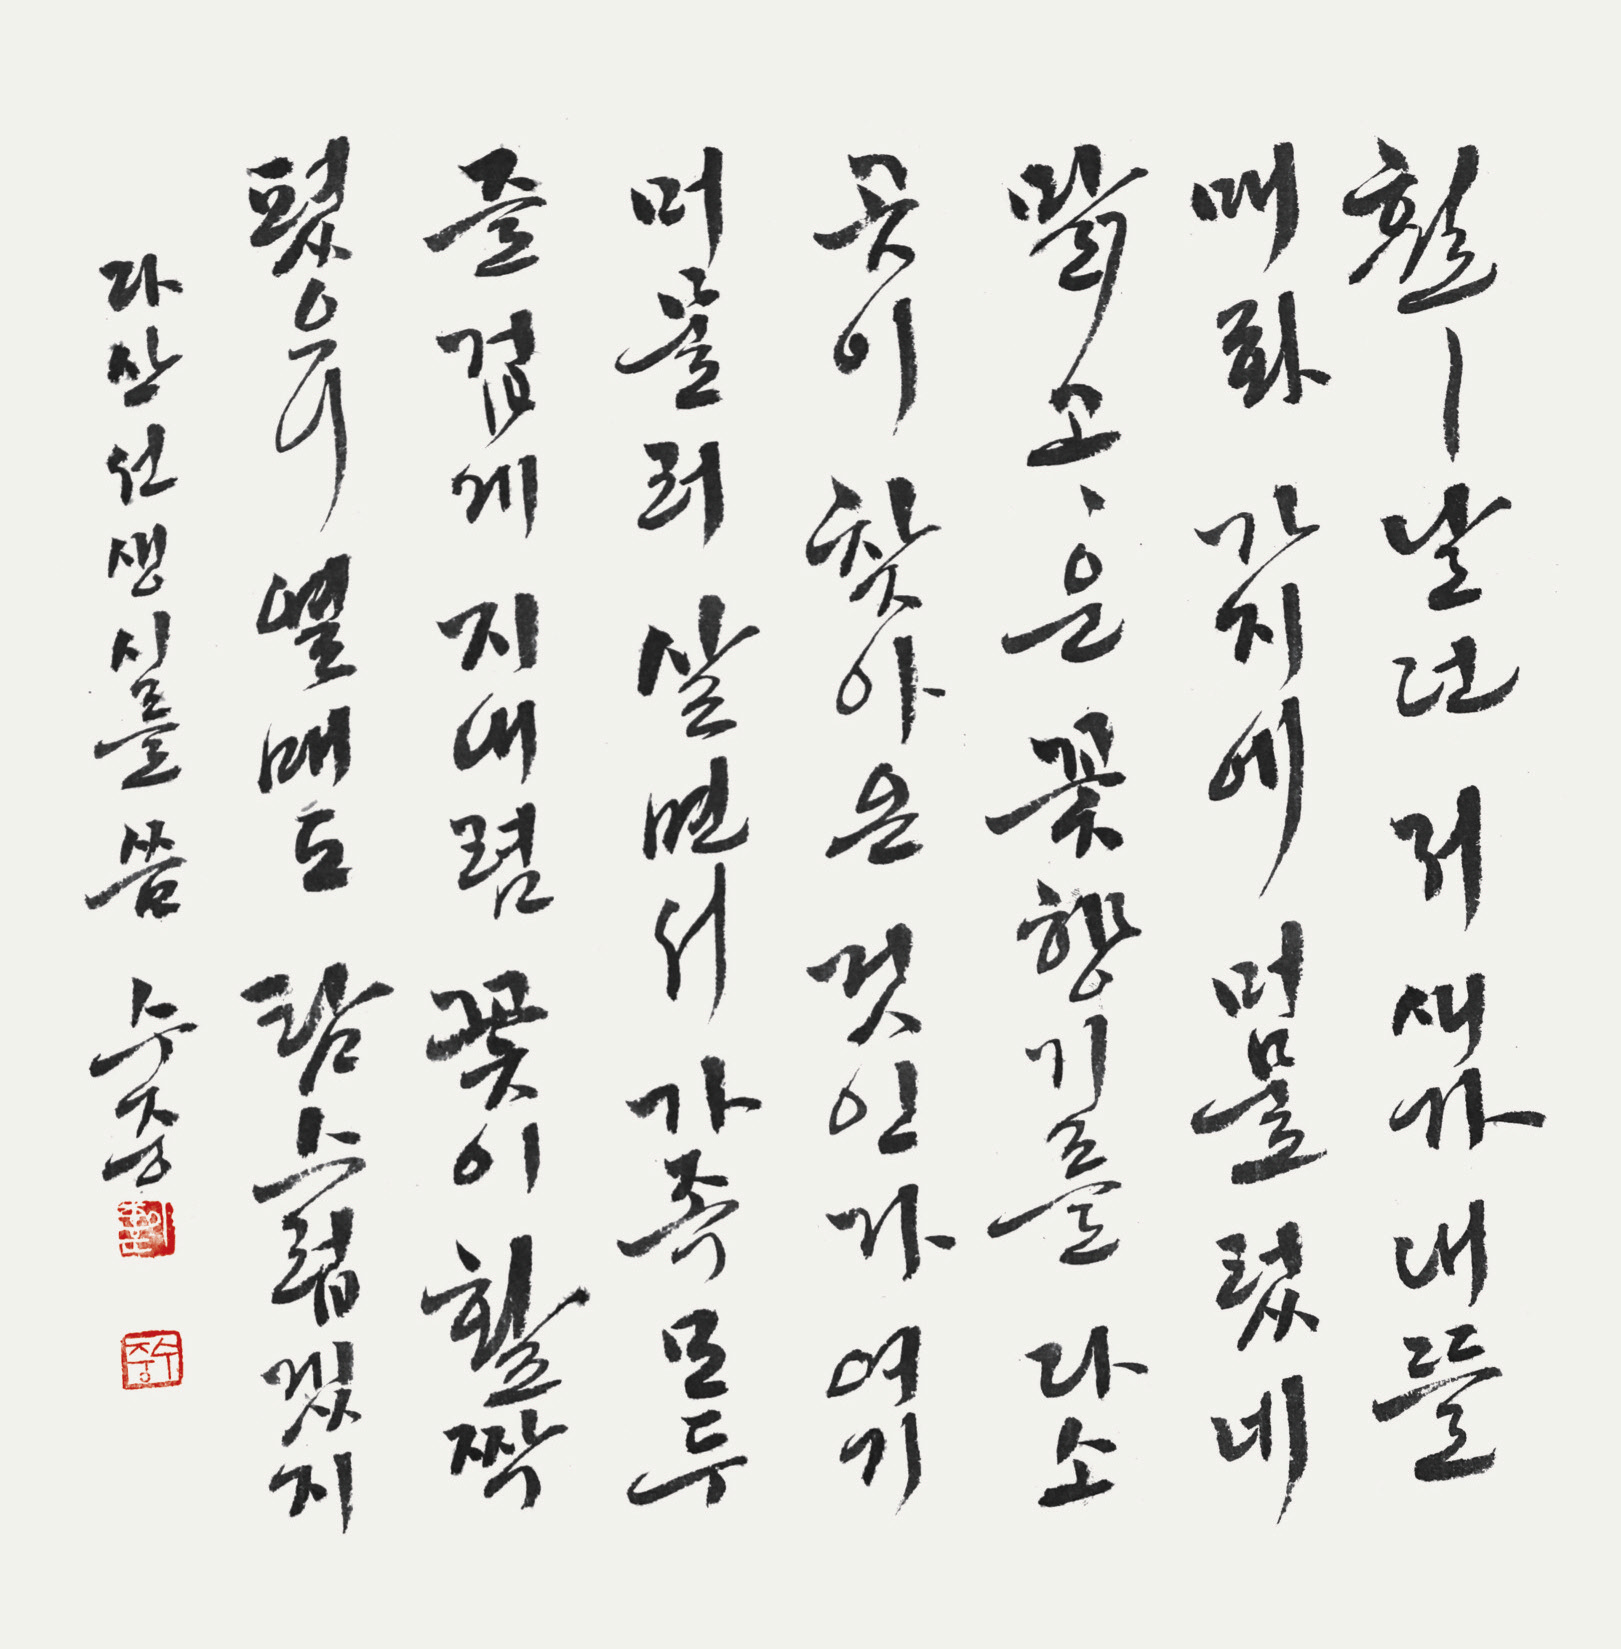 훨〃날던 저 새가 내 뜰
매화 가지에 머물렀네
맑고〃은 꽃향기를 다소
곳이 찾아온 것인가 여기
머물러 살면서 가족 모두
즐겁게 지내렴 꽃이 활짝
폈으니 열매도 탐스럽겠지
다산선생 시를 씀 수중
수중